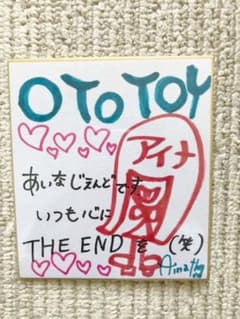 OTOTOY
アイナ
あいなじえんどです
いつも心に
THE END を（笑）